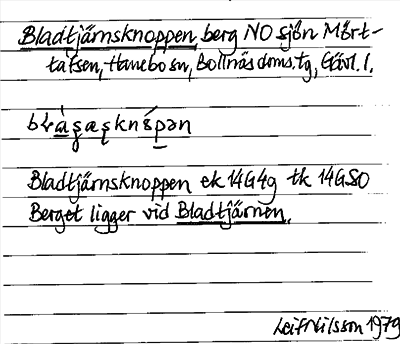 Bladtjärnsknoppen, berg NO sjön Mört-
tåtsen, Hanebo sn, Bollnäs doms. tg, Gävl. l.
Bladtjärnsknoppen ek 14G4g tk 14GSO
Berget ligger vid Bladtjärnen.
Leif Nilsson 1979